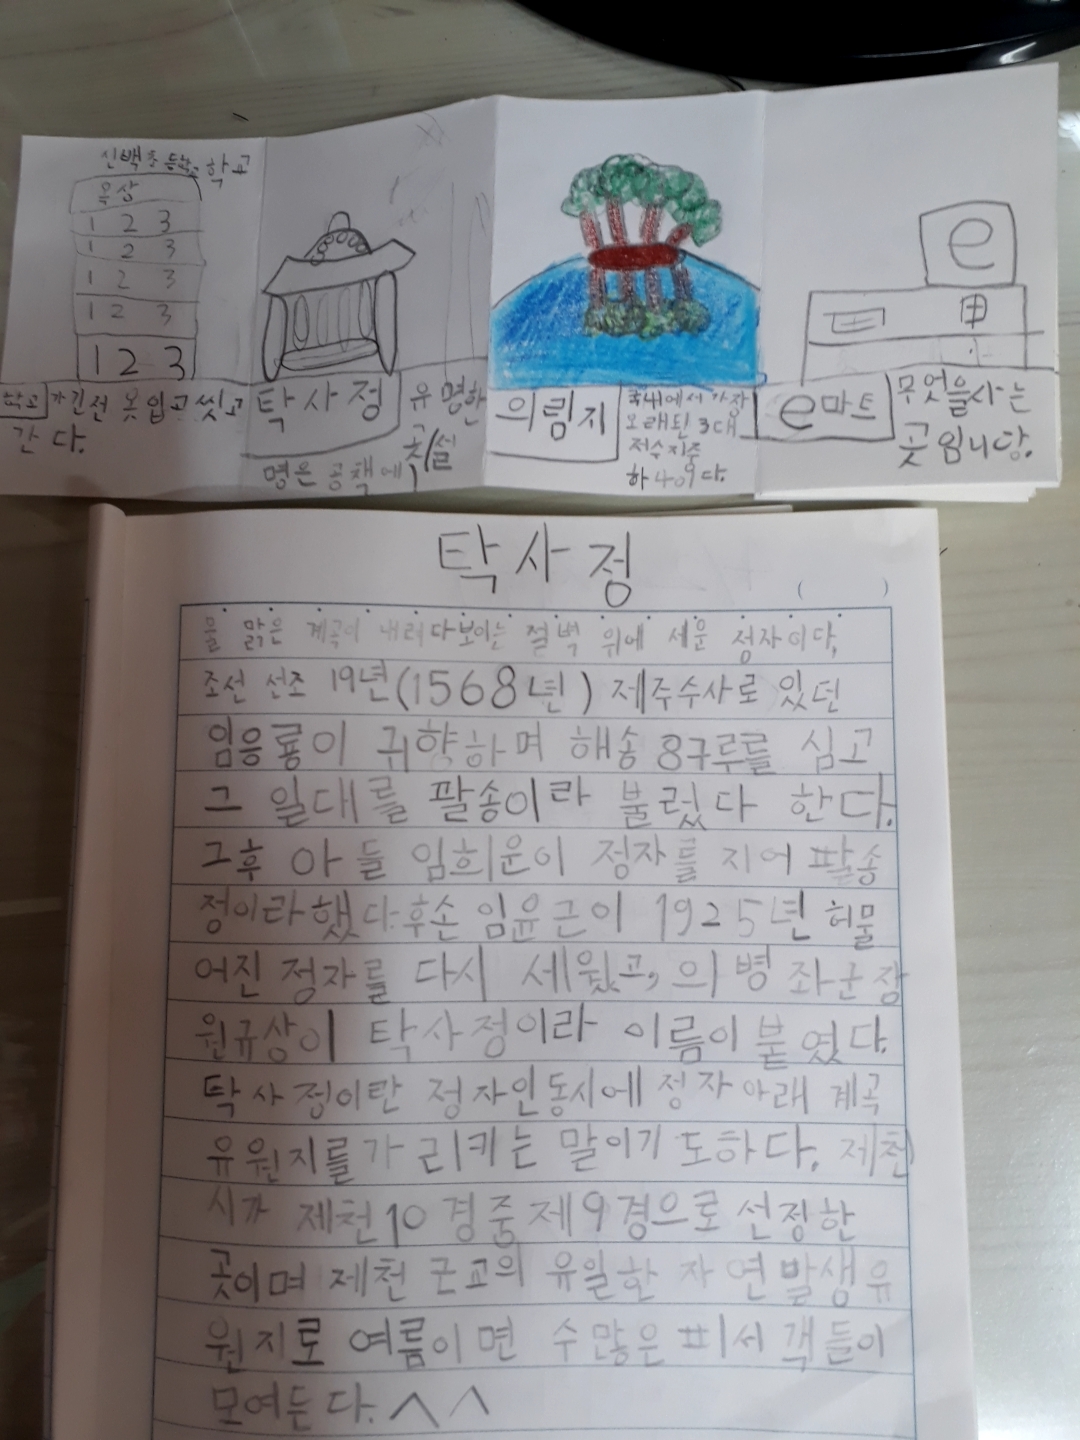 신백초등학교 학교
옥상
1 2 3
1 2 3
1 2 3
1 2 3
1 2 3
학교 가긴선 옷입고 씻고
간다.
탁사정
유명한
곳(설
명은 공책에)
의림지
국내에서 가장
오래된 3대
저수지중
하나이다.
e
e마트
무엇을사는
곳입니당.
탁사정
( )
물 맑은 계곡이 내려다보이는 절벽 위에 세운 정자이다,
조선 선조 19년(1568년) 제주수사로 있던
임응룡이 귀향하며 해송 8구루를 심고
그 일대를 팔송이라 불렀다 한다.
그후 아들 임희운이 정자를 지어 팔송
정이라했다.후손 임윤근이 1925년 허물
어진 정자를 다시 세웠고, 의병 좌군장
원규상이 탁사정이라 이름이 붙였다.
탁사정이란 정자인동시에 정자 아래 계곡
유원지를 가리키는 말이기도하다. 제천
시가 제천10경중 제9경으로 선정한
곳이며 제천 근교의 유일한 자연발생유
원지로 여름이면 수많은 피서객들이
모여든다.^^